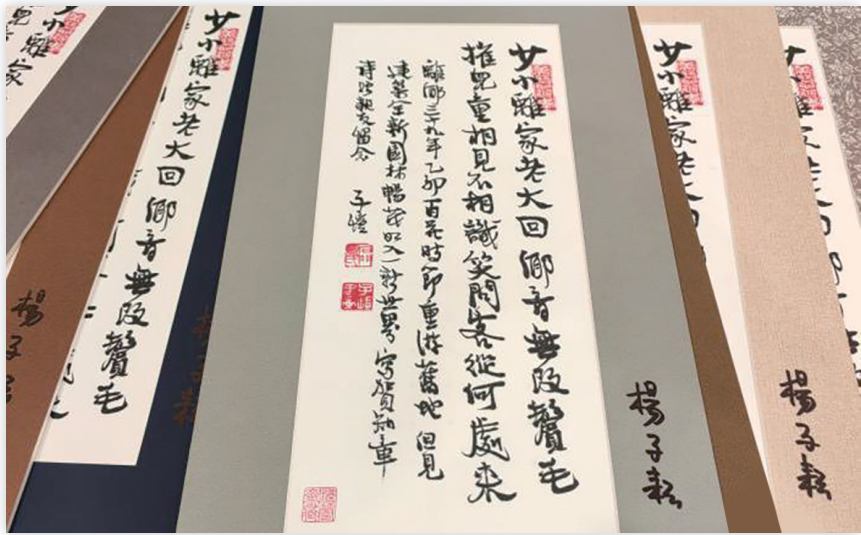 少小離家老大回鄉音無改鬢毛
摧兒童相見不相識笑問客從何處來
離鄉三十九年乙卯百花時節重游舊地但見
建築全新園林暢茂如入一新世界寫賀知章
詩贈親友留念 子愷
楊子耘
少小離家老大回鄉音無改鬢毛
楊子
少小離家老大
楊子耘
少小離家老大回鄉音
小離家